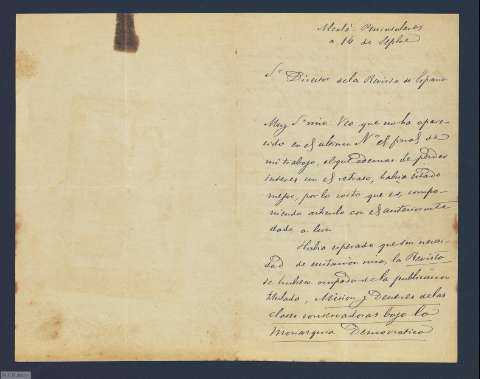 a 14 de Sepbre
Sr Director de la Revista de España
Muy Sr mio: Veo que no ha apare-
cido en el ultimo No el final de
mi trabajo, el qe ademas de perder
interes con el retraso, habria estado
mejor, por lo corto que es, compo-
niendo articulo con el anteriormte
dado a luz.
Habia esperado que sin necesi-
dad de escitacion mia, la Revista
se hubiera ocupado de la publicacion
titulada, Mision y Deberes de las
clases conservadoras bajo la
Monarquia Democratica